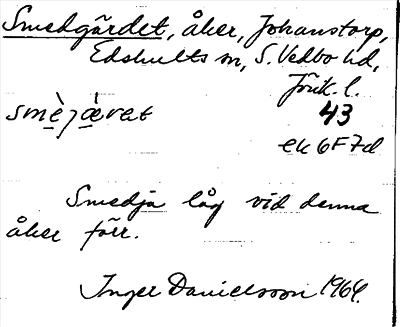 Smedgärdet, åker, Johanstorp,
Edshults sn, S. Vedbo hd,
Jönk. l.
smèjæ̀rat 43
ek 6F7d
Smedja låg vid denna
åker förr.
Inger Danielsson 1964.